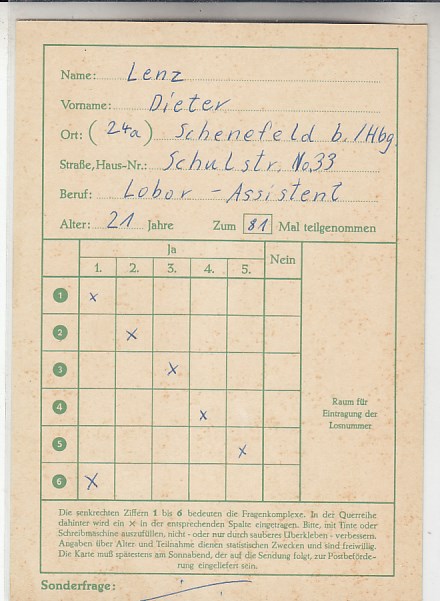 Name: Lenz
Vorname: Dieter
Ort: (24a) Schenefeld b./Hbg.
Straße, Haus-Nr.: Schulstr. No. 33
Beruf: Lobor - Assistent
Alter: 21 Jahre Zum 81 Mal teilgenommen
Ja Nein
1. 2. 3. 4. 5.
1 x
2 x
3 x
4 x
5 x
6 x
Raum für
Eintragung der
Losnummer
Die senkrechten Ziffern 1 bis 6 bedeuten die Fragenkomplexe. In der Querreihe
dahinter wird ein x in der entsprechenden Spalte eingetragen. Bitte, mit Tinte oder
Schreibmaschine auszufüllen, nicht - oder nur durch sauberes Überkleben - verbessern.
Angaben über Alter und Teilnahme dienen statistischen Zwecken und sind freiwillig.
Die Karte muß spätestens am Sonnabend, der auf die Sendung folgt, zur Postbeförde-
rung eingeliefert sein.
Sonderfrage: